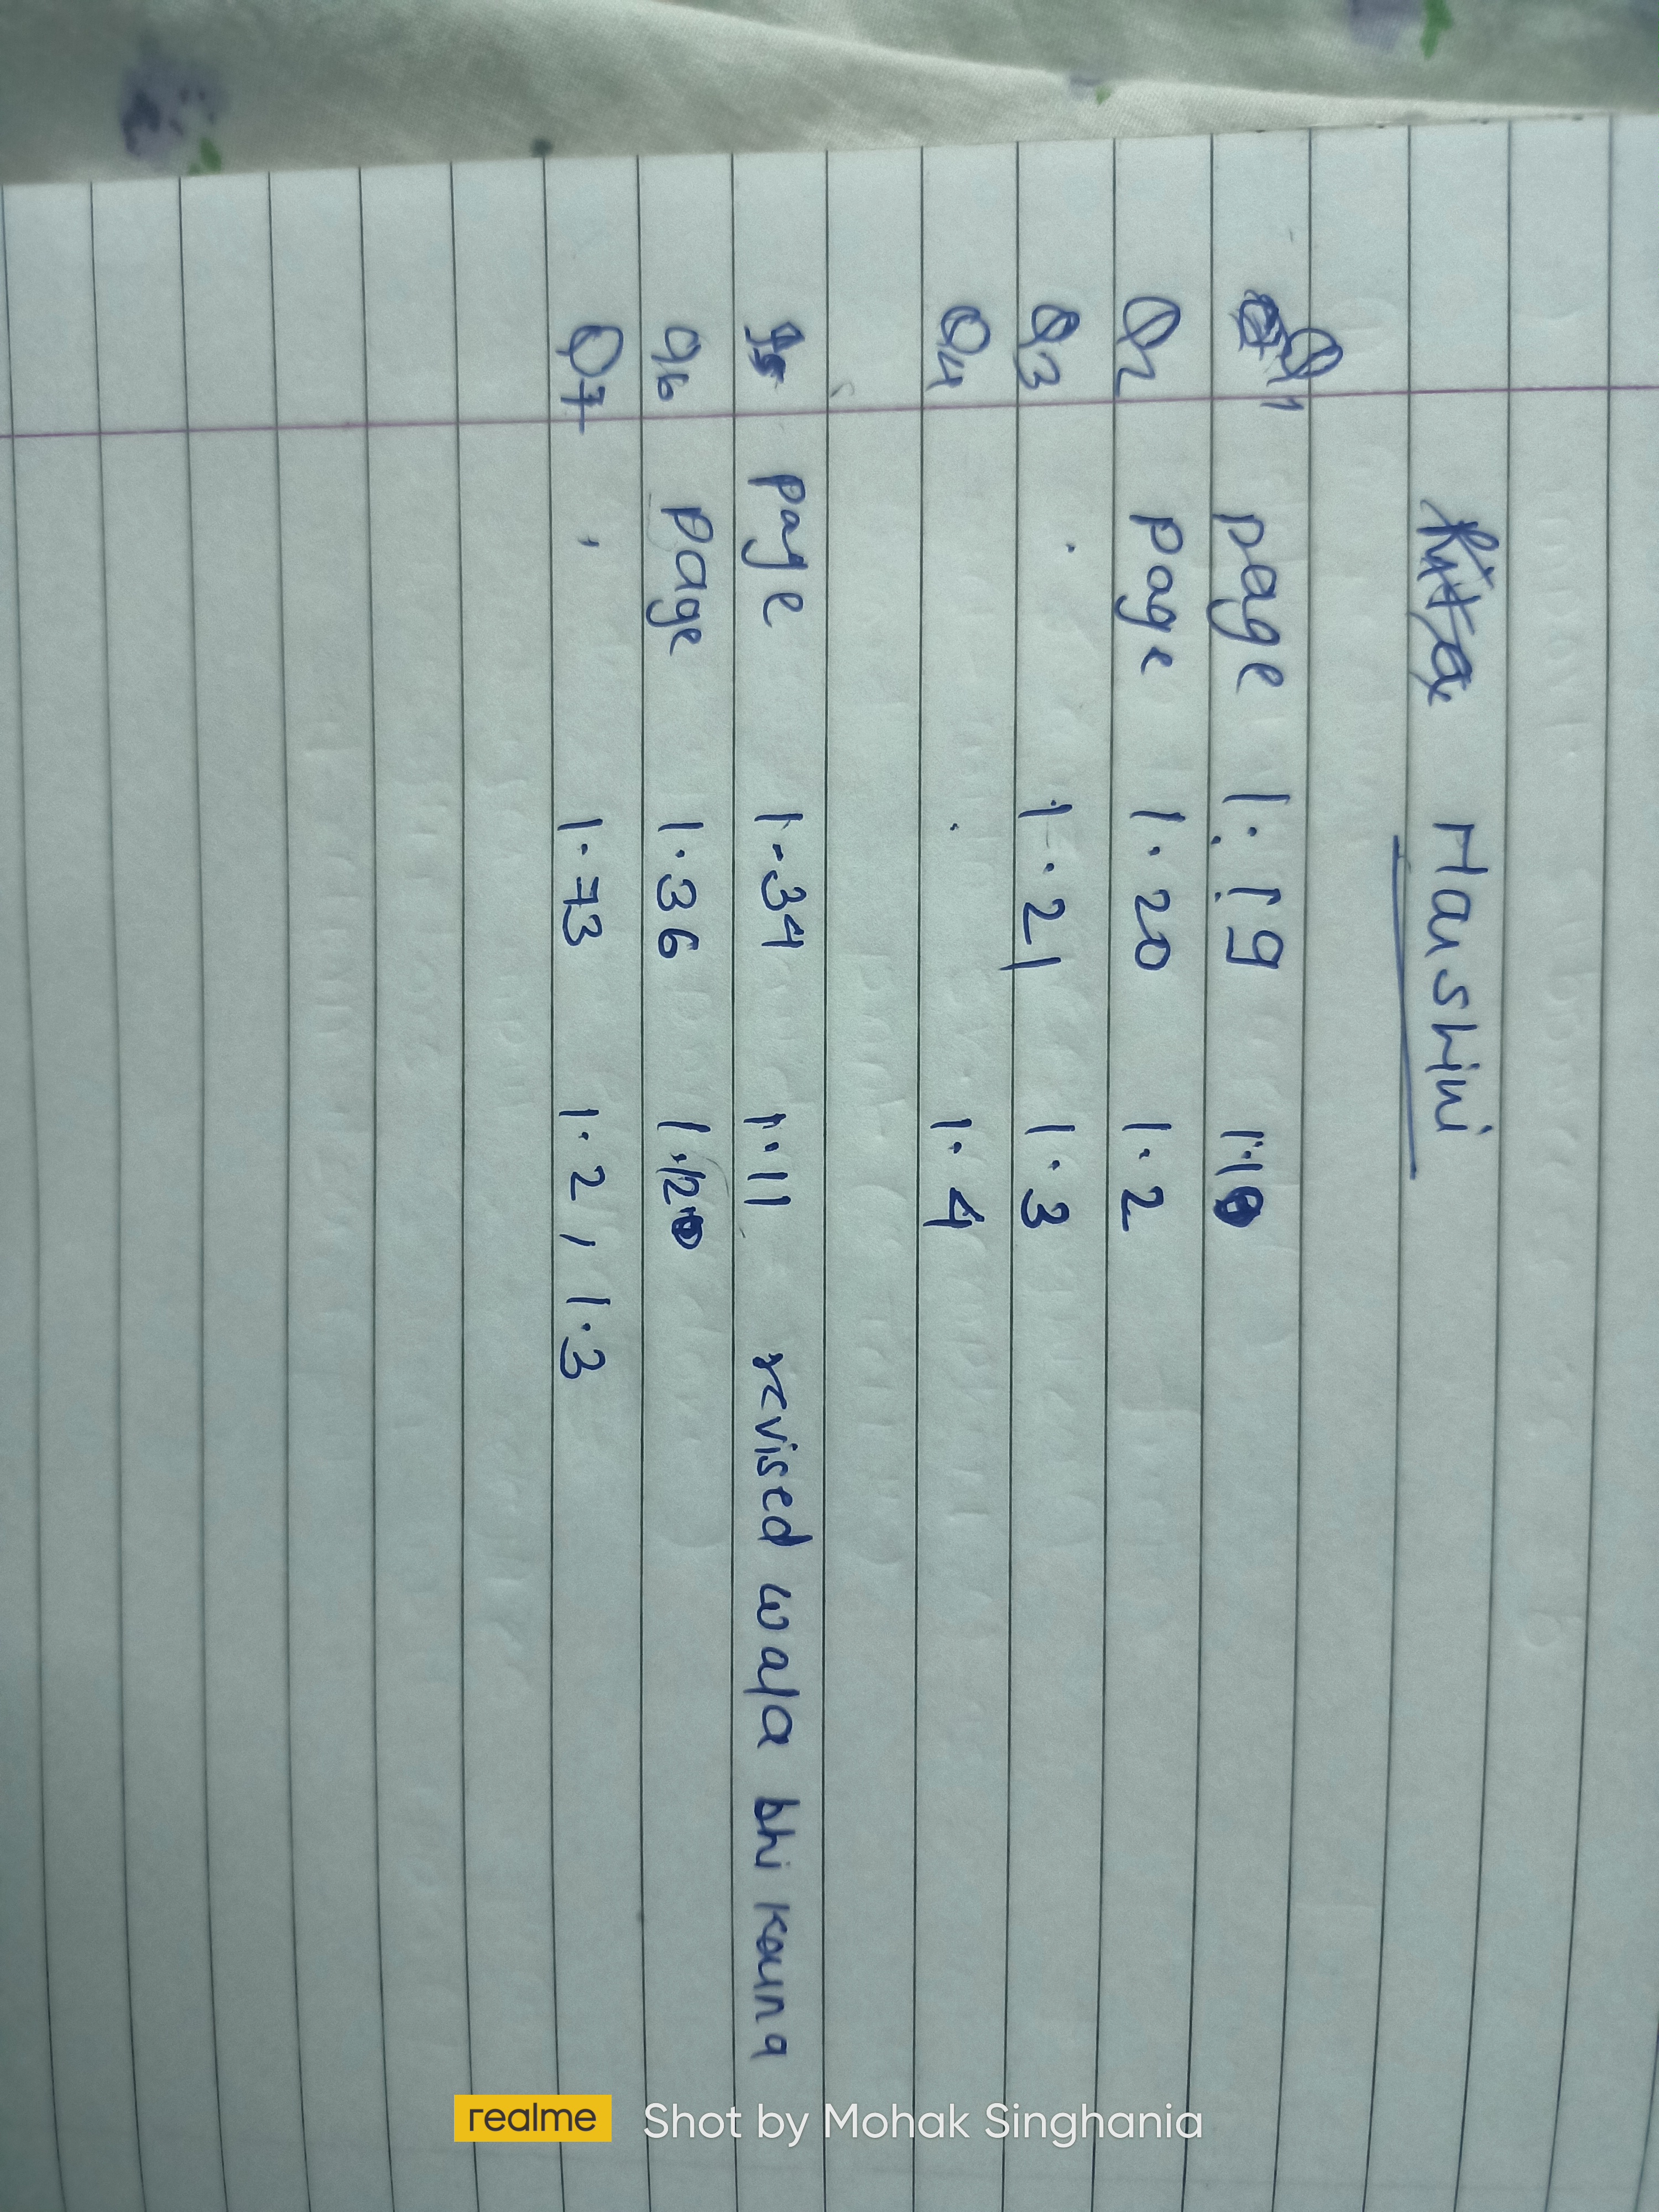 Harshini
Q1 page 1.19 1.1
Q2 page 1.20 1.2
Q3 1.21 1.3
Q4 1.4
Q5 page 1.34 1.11 revised wala bhi karna
Q6 page 1.36 1.12
Q7 1.73 1.2, 1.3
realme Shot by Mohak Singhania